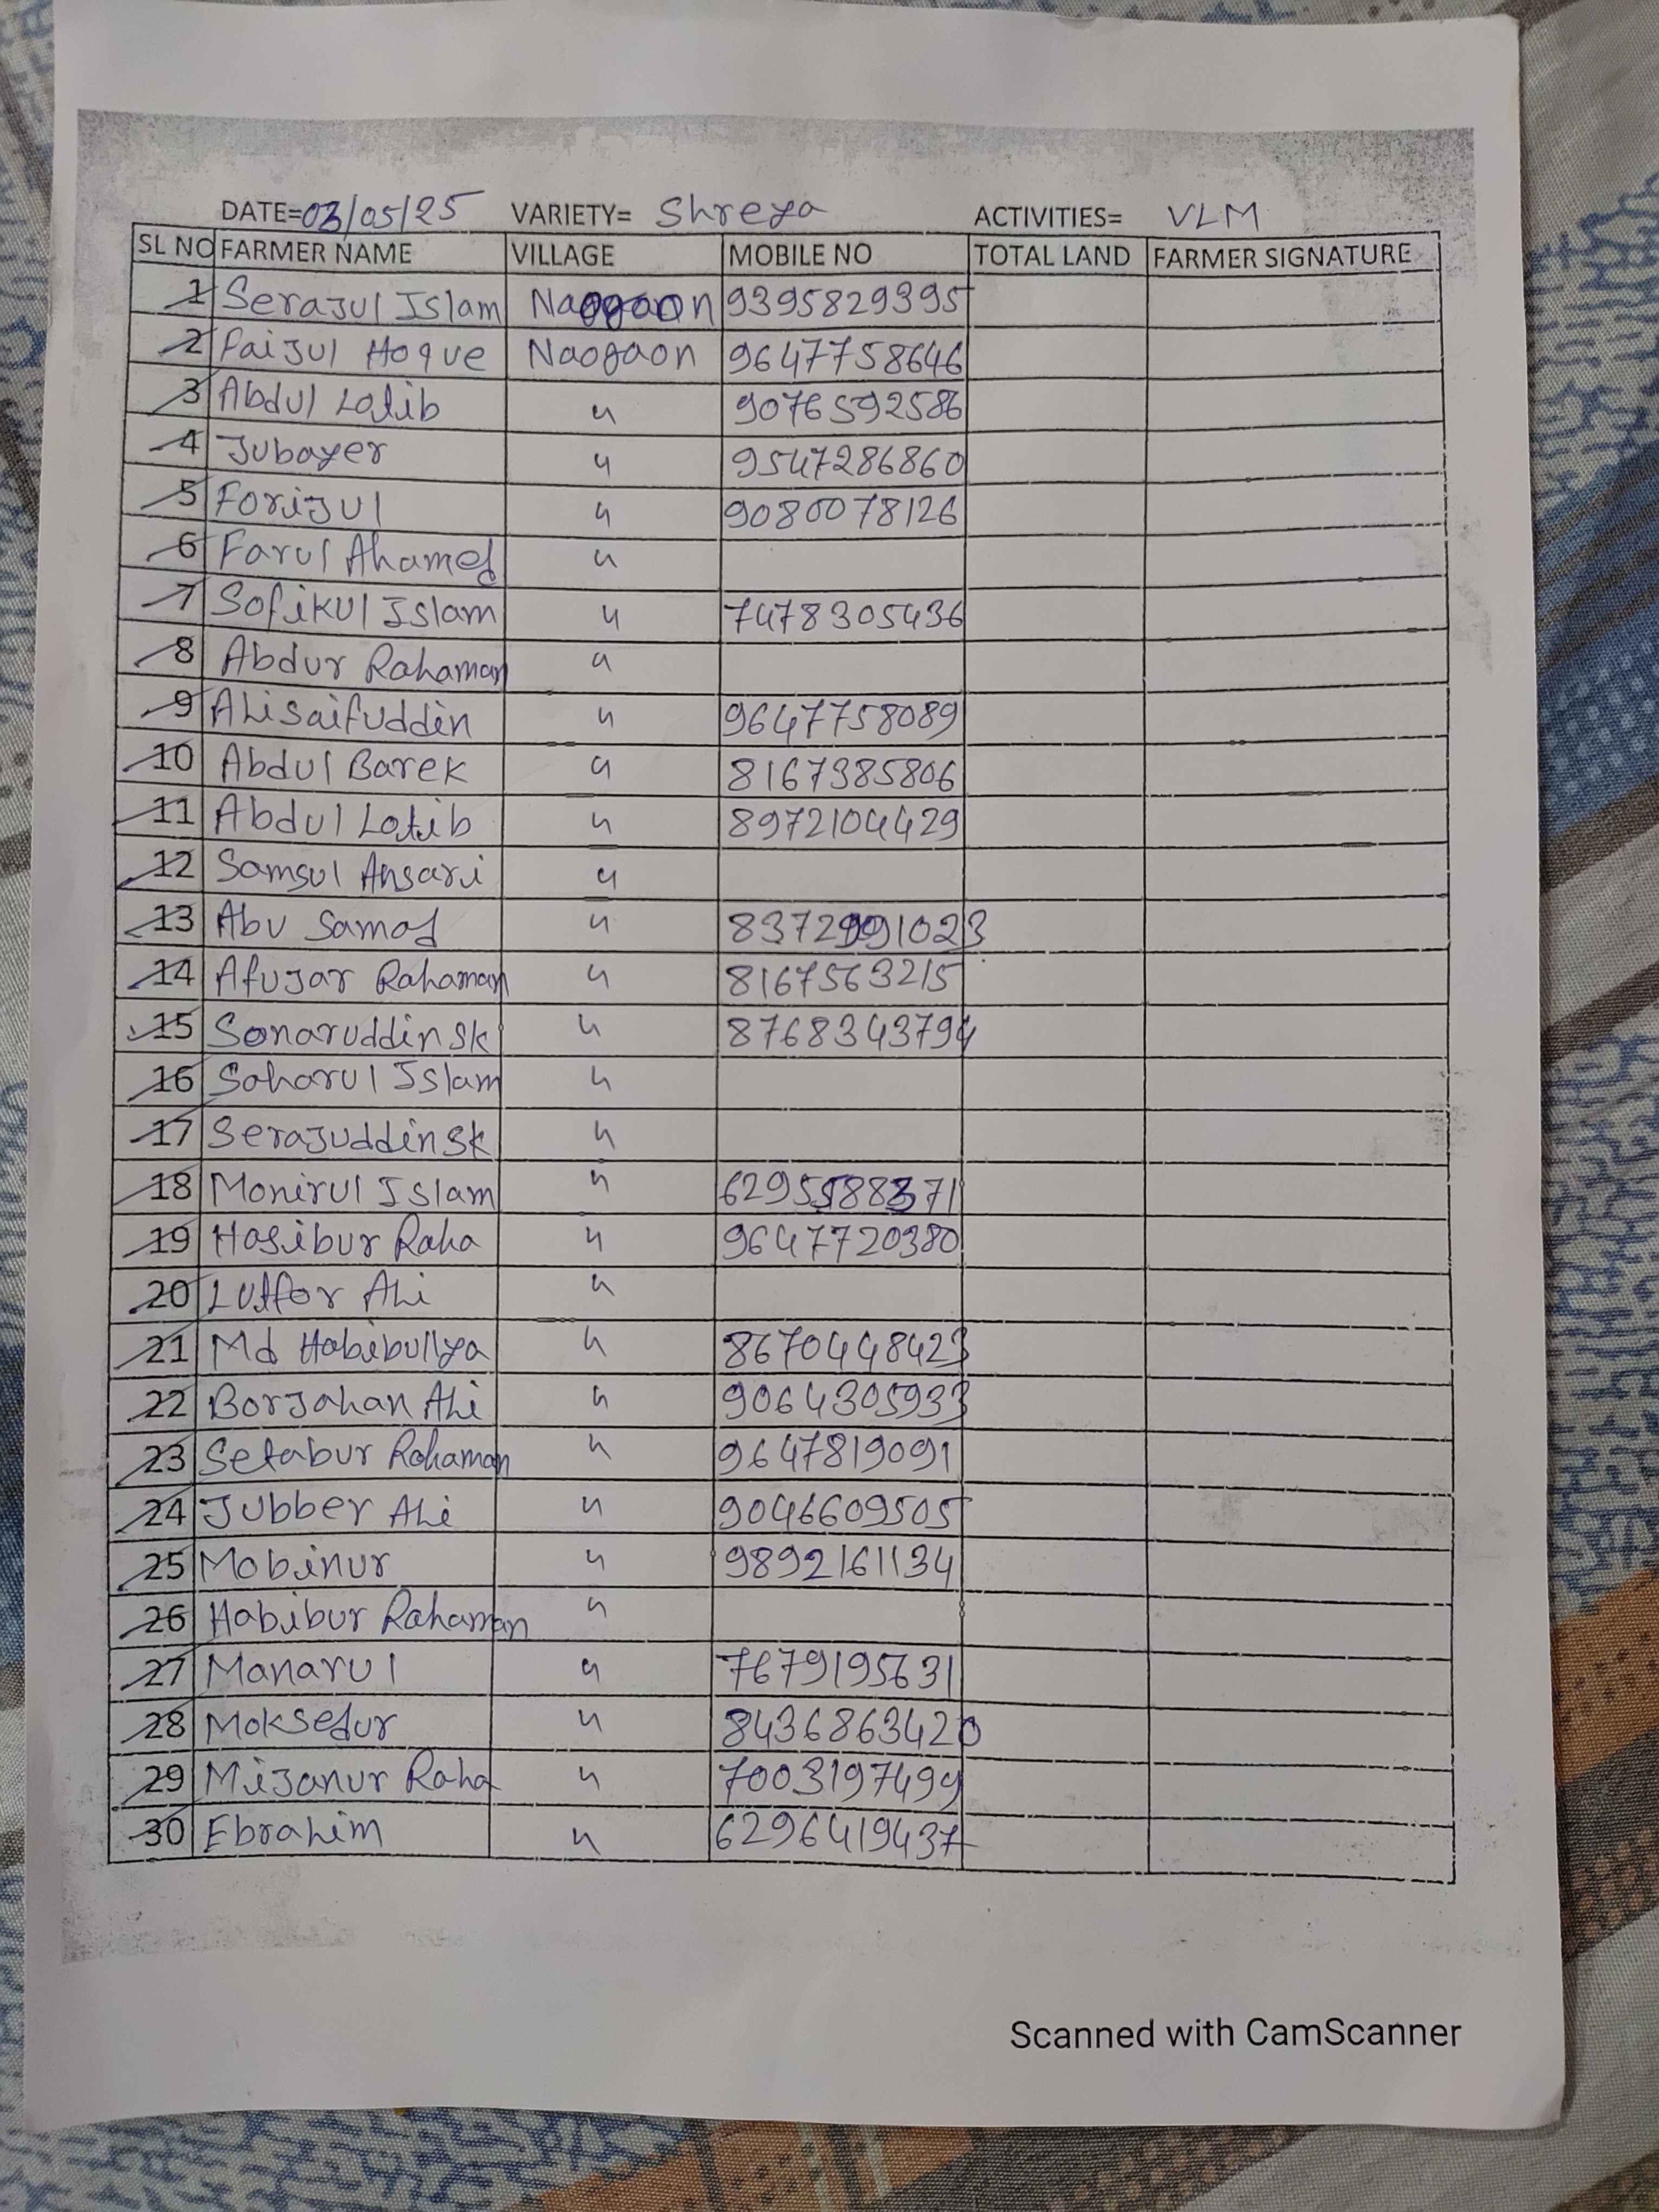 DATE=03/05/25 VARIETY= Shreya ACTIVITIES= VLM
SL NO FARMER NAME VILLAGE MOBILE NO TOTAL LAND FARMER SIGNATURE
1 Serajul Islam Naogaon 9395829395
2 Faijul Hoque Naogaon 9647758646
3 Abdul Latib " 9076592586
4 Jubayer " 9547286860
5 Forijul " 9080078126
6 Farul Ahamed "
7 Sofikul Islam " 7478305436
8 Abdur Rahaman "
9 Alisaifuddin " 9647758089
10 Abdul Barek " 8167385806
11 Abdul Latib " 8972104429
12 Samsul Ansari "
13 Abu Samad " 8372991023
14 Afujar Rahaman " 8167563215
15 Sonaruddin Sk " 8768343794
16 Saharul Islam "
17 Serajuddin Sk "
18 Monirul Islam " 6295588371
19 Hasibur Raha " 9647720380
20 Lutfor Ali "
21 Md Habibullya " 8670448423
22 Borjahan Ali " 9064305933
23 Setabur Rahaman " 9647819091
24 Jubber Ali " 9046609505
25 Mobinur " 9892161134
26 Habibur Rahaman "
27 Manarul " 7679195631
28 Moksedur " 8436863420
29 Mijanur Raha " 7003197499
30 Ebrahim " 6296419437
Scanned with CamScanner